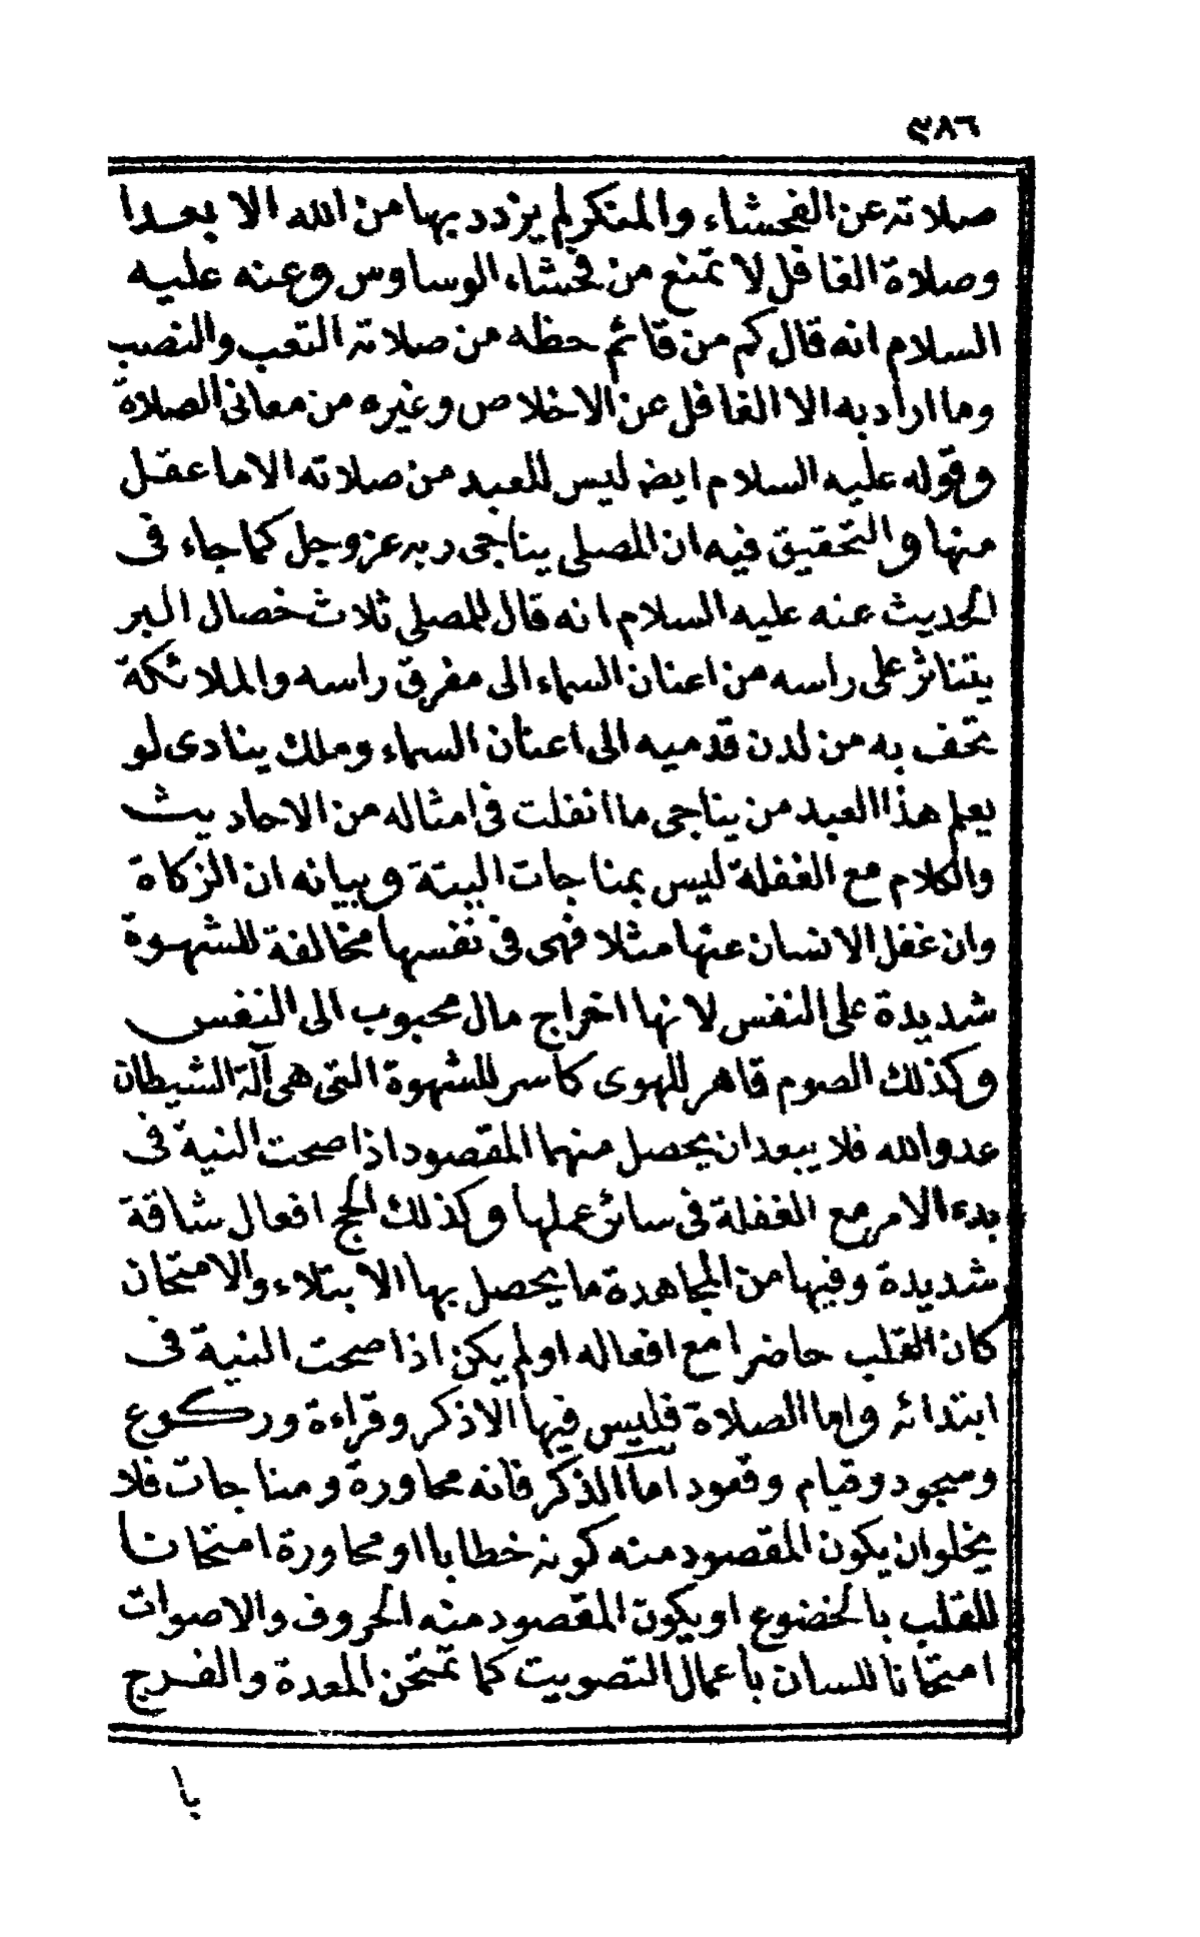 ٣٨٦
صلاته عن الفحشاء والمنكر لم يزدد بها من الله الا بعدا
وصلاة الغافل لا تمنع من فحشاء الوساوس وعنه عليه
السلام انه قال كم من قائم حظه من صلاته التعب والنصب
وما اراد به الا الغافل عن الاخلاص وغيره من معانى الصلاة
وقوله عليه السلام ايضا ليس للعبد من صلاته الا ما عقل
منها والتحقيق فيه ان المصلى يناجى ربه عز وجل كما جاء فى
الحديث عنه عليه السلام انه قال للمصلى ثلاث خصال البر
يتناثر على راسه من اعنان السماء الى مفرق راسه والملائكة
تحف به من لدن قدميه الى اعنان السماء وملك ينادى لو
يعلم هذا العبد من يناجى ما انفلت فى امثاله من الاحاديث
والكلام مع الغفلة ليس بمناجات البتة وبيانه ان الزكاة
وان غفل الانسان عنها مثلا فهى فى نفسها مخالفة للشهوة
شديدة على النفس لانها اخراج مال محبوب الى النفس
وكذلك الصوم قاهر للهوى كاسر للشهوة التى هى آلة الشيطان
عدو الله فلا يبعد ان يحصل منهما المقصود اذا صحت النية فى
بدء الامر مع الغفلة فى سائر عملها وكذلك الحج افعال شاقة
شديدة وفيها من المجاهدة ما يحصل بها الابتلاء والامتحان
كان القلب حاضرا مع افعاله او لم يكن اذا صحت النية فى
ابتدائه واما الصلاة فليس فيها الا ذكر وقراءة وركوع
وسجود وقيام وقعود اما الذكر فانه محاورة ومناجات فلا
يخلو ان يكون المقصود منه كونه خطابا او محاورة امتحانا
للقلب بالخضوع او يكون المقصود منه الحروف والاصوات
امتحانا للسان باعمال التصويت كما تمتحن المعدة والفرج
با